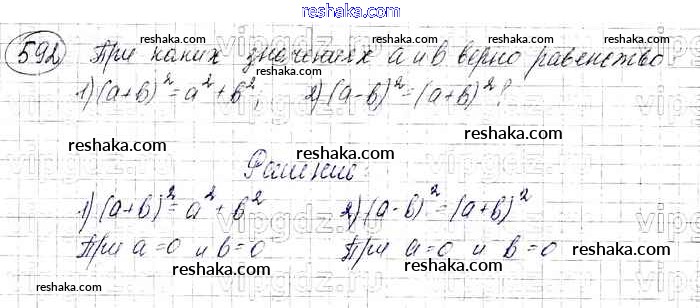 reshaka.com
592 При каких значениях а и в верно равенство
1) (а+в)² = а² + в², 2) (а-в)² = (а+в)²?
reshaka.com reshaka.com reshaka.com
Решение:
1) (а+в)² = а² + в² 2) (а-в)² = (а+в)²
reshaka.com reshaka.com reshaka.com
При а=0 и в=0 При а=0 и в=0
reshaka.com reshaka.com
reshaka.com